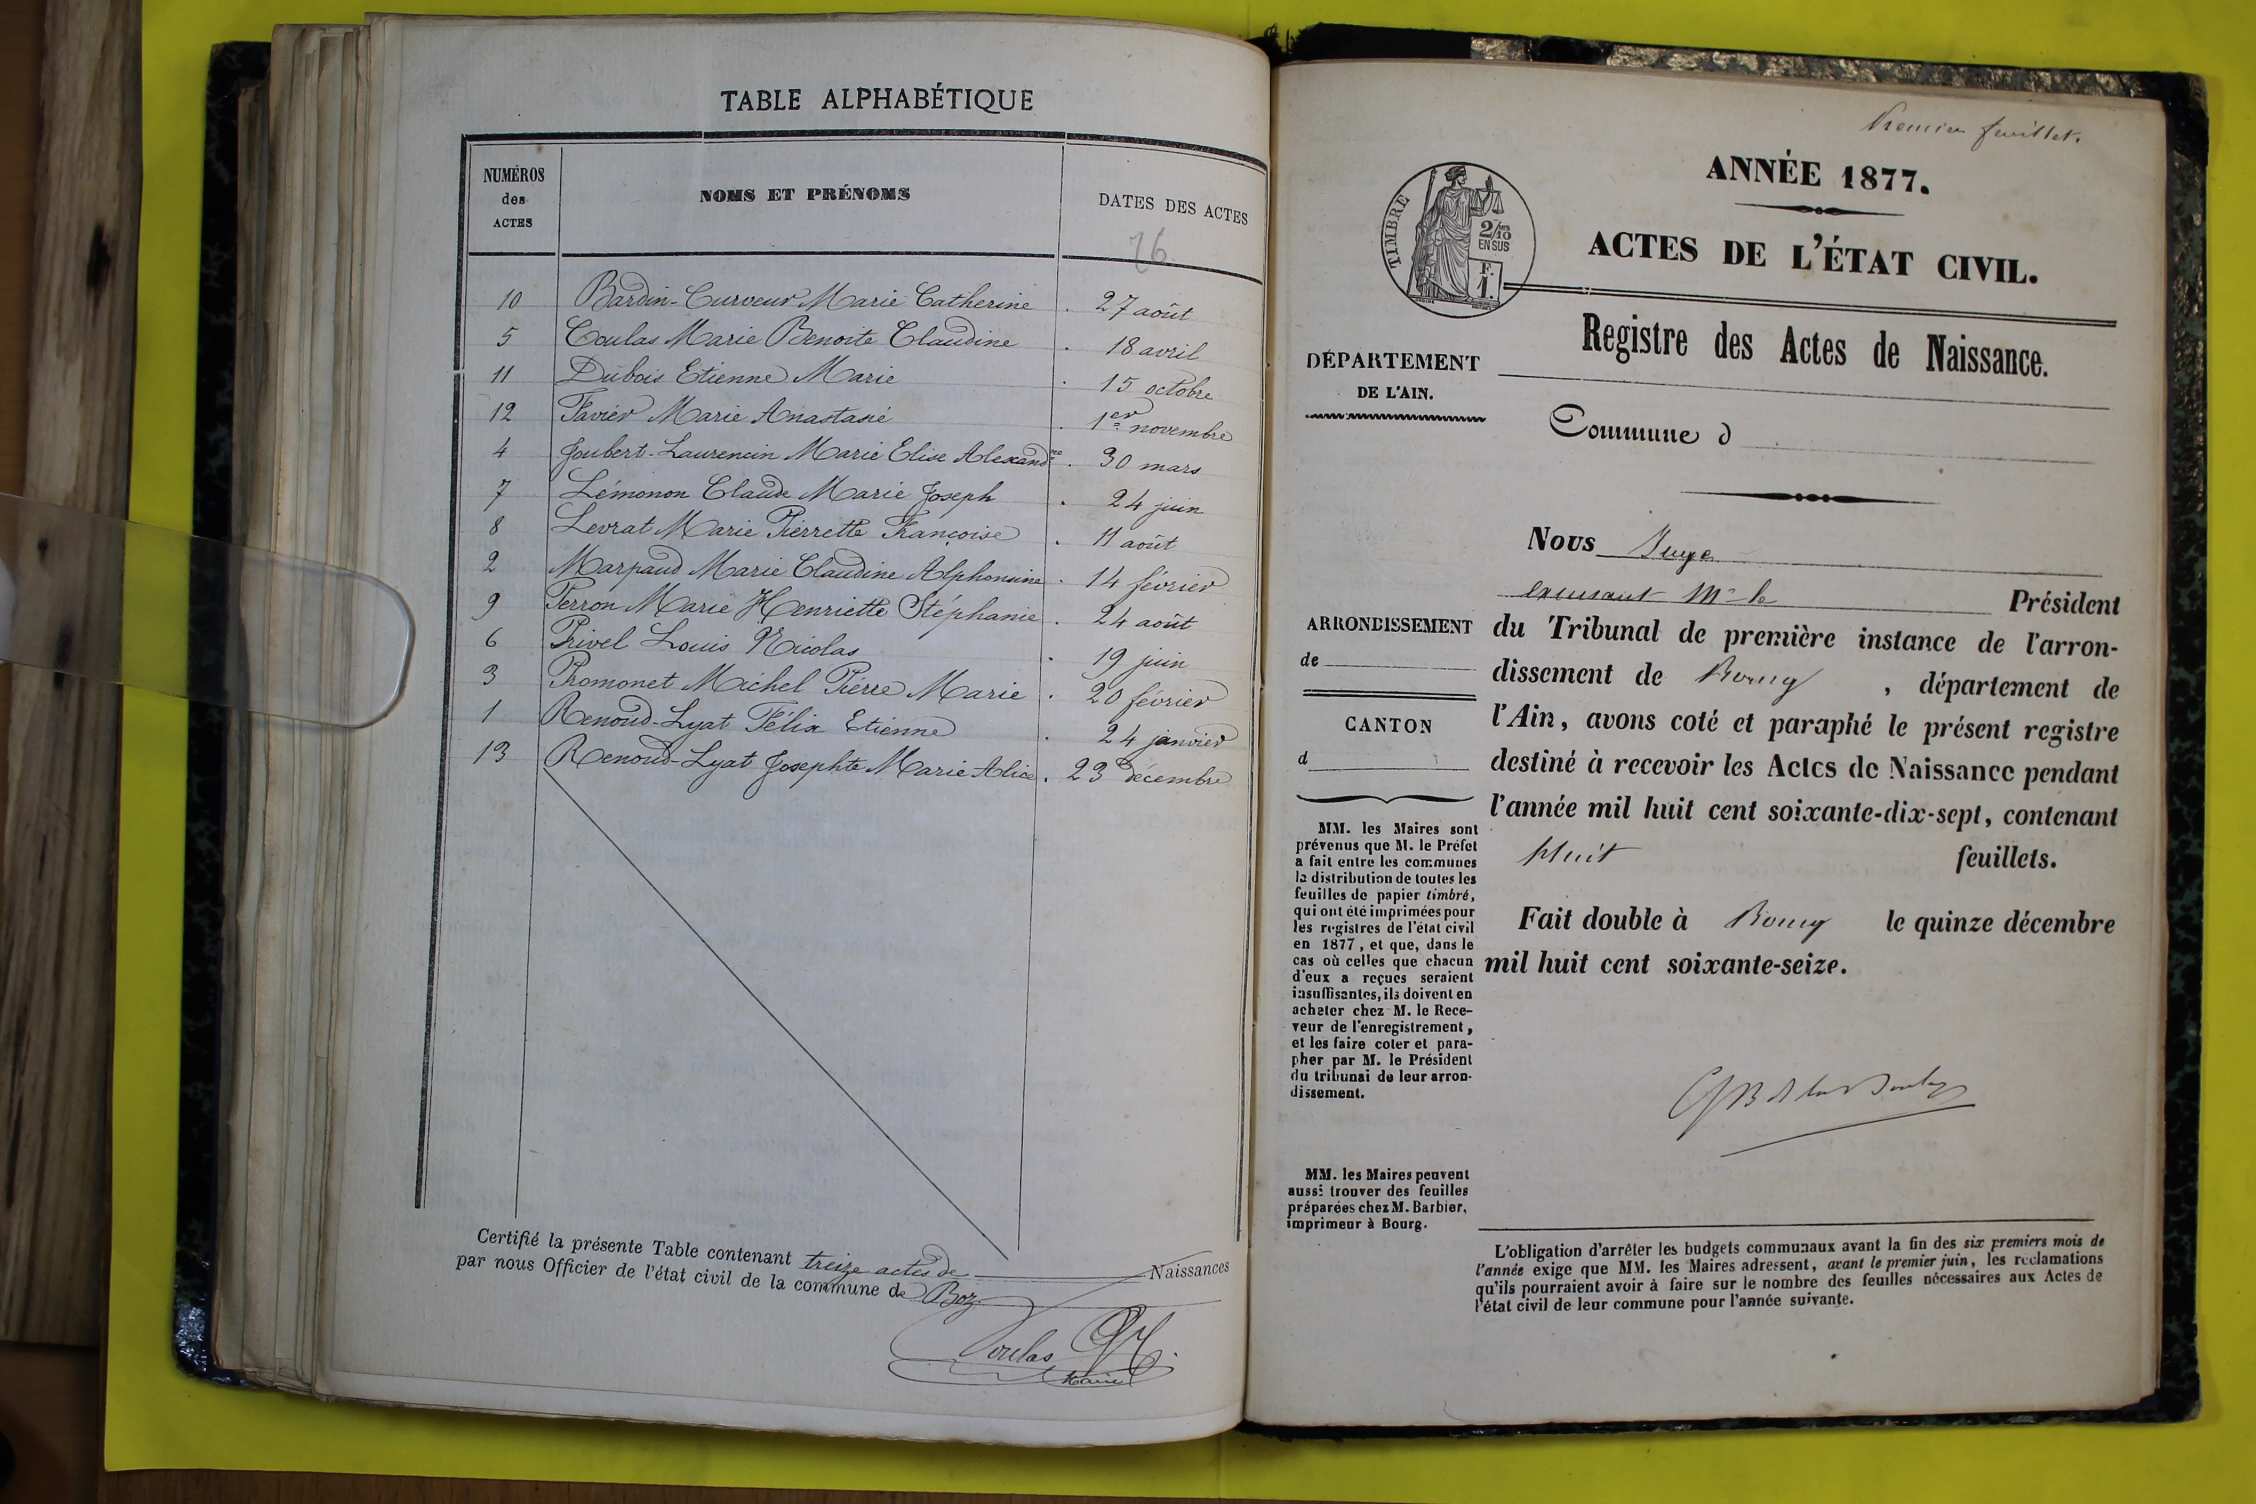 TABLE ALPHABÉTIQUE
NUMÉROS des ACTES
NOMS ET PRÉNOMS
DATES DES ACTES
76
10 Bardin-Curveur Marie Catherine 27 août
5 Coulas Marie Benoite Claudine 18 avril
11 Dubois Etienne Marie 15 octobre
12 Favier Marie Anastasie 1er novembre
4 Joubert-Laurencin Marie Elise Alexandre 30 mars
7 Lémonon Claude Marie Joseph 24 juin
8 Levrat Marie Pierrette Françoise 11 août
2 Marpaud Marie Claudine Alphonsine 14 février
9 Perron Marie Henriette Stéphanie 24 août
6 Privel Louis Nicolas 19 juin
3 Promonet Michel Pierre Marie 20 février
1 Renoud-Lyat Félix Etienne 24 janvier
13 Renoud-Lyat Josephte Marie Alice 23 décembre
Certifié la présente Table contenant treize actes de Naissances
par nous Officier de l'état civil de la commune de Boz
Coulas
Maire
Premier feuillet.
ANNÉE 1877.
TIMBRE
2/10
EN SUS
F.
1.
ACTES DE L'ÉTAT CIVIL.
Registre des Actes de Naissance.
DÉPARTEMENT
DE L'AIN.
Commune d
Nous Juge
M. le Président
ARRONDISSEMENT
de
CANTON
d
du Tribunal de première instance de l'arron-
dissement de Bourg, département de
l'Ain, avons coté et paraphé le présent registre
destiné à recevoir les Actes de Naissance pendant
l'année mil huit cent soixante-dix-sept, contenant
huit feuillets.
Fait double à Bourg le quinze décembre
mil huit cent soixante-seize.
MM. les Maires sont
prévenus que M. le Préfet
a fait entre les communes
la distribution de toutes les
feuilles de papier timbré,
qui ont été imprimées pour
les registres de l'état civil
en 1877, et que, dans le
cas où celles que chacun
d'eux a reçues seraient
insuffisantes, ils doivent en
acheter chez M. le Rece-
veur de l'enregistrement,
et les faire coter et para-
pher par M. le Président
du tribunal de leur arron-
dissement.
MM. les Maires peuvent
aussi trouver des feuilles
préparées chez M. Barbier,
imprimeur à Bourg.
L'obligation d'arrêter les budgets communaux avant la fin des six premiers mois de
l'année exige que MM. les Maires adressent, avant le premier juin, les réclamations
qu'ils pourraient avoir à faire sur le nombre des feuilles nécessaires aux Actes de
l'état civil de leur commune pour l'année suivante.